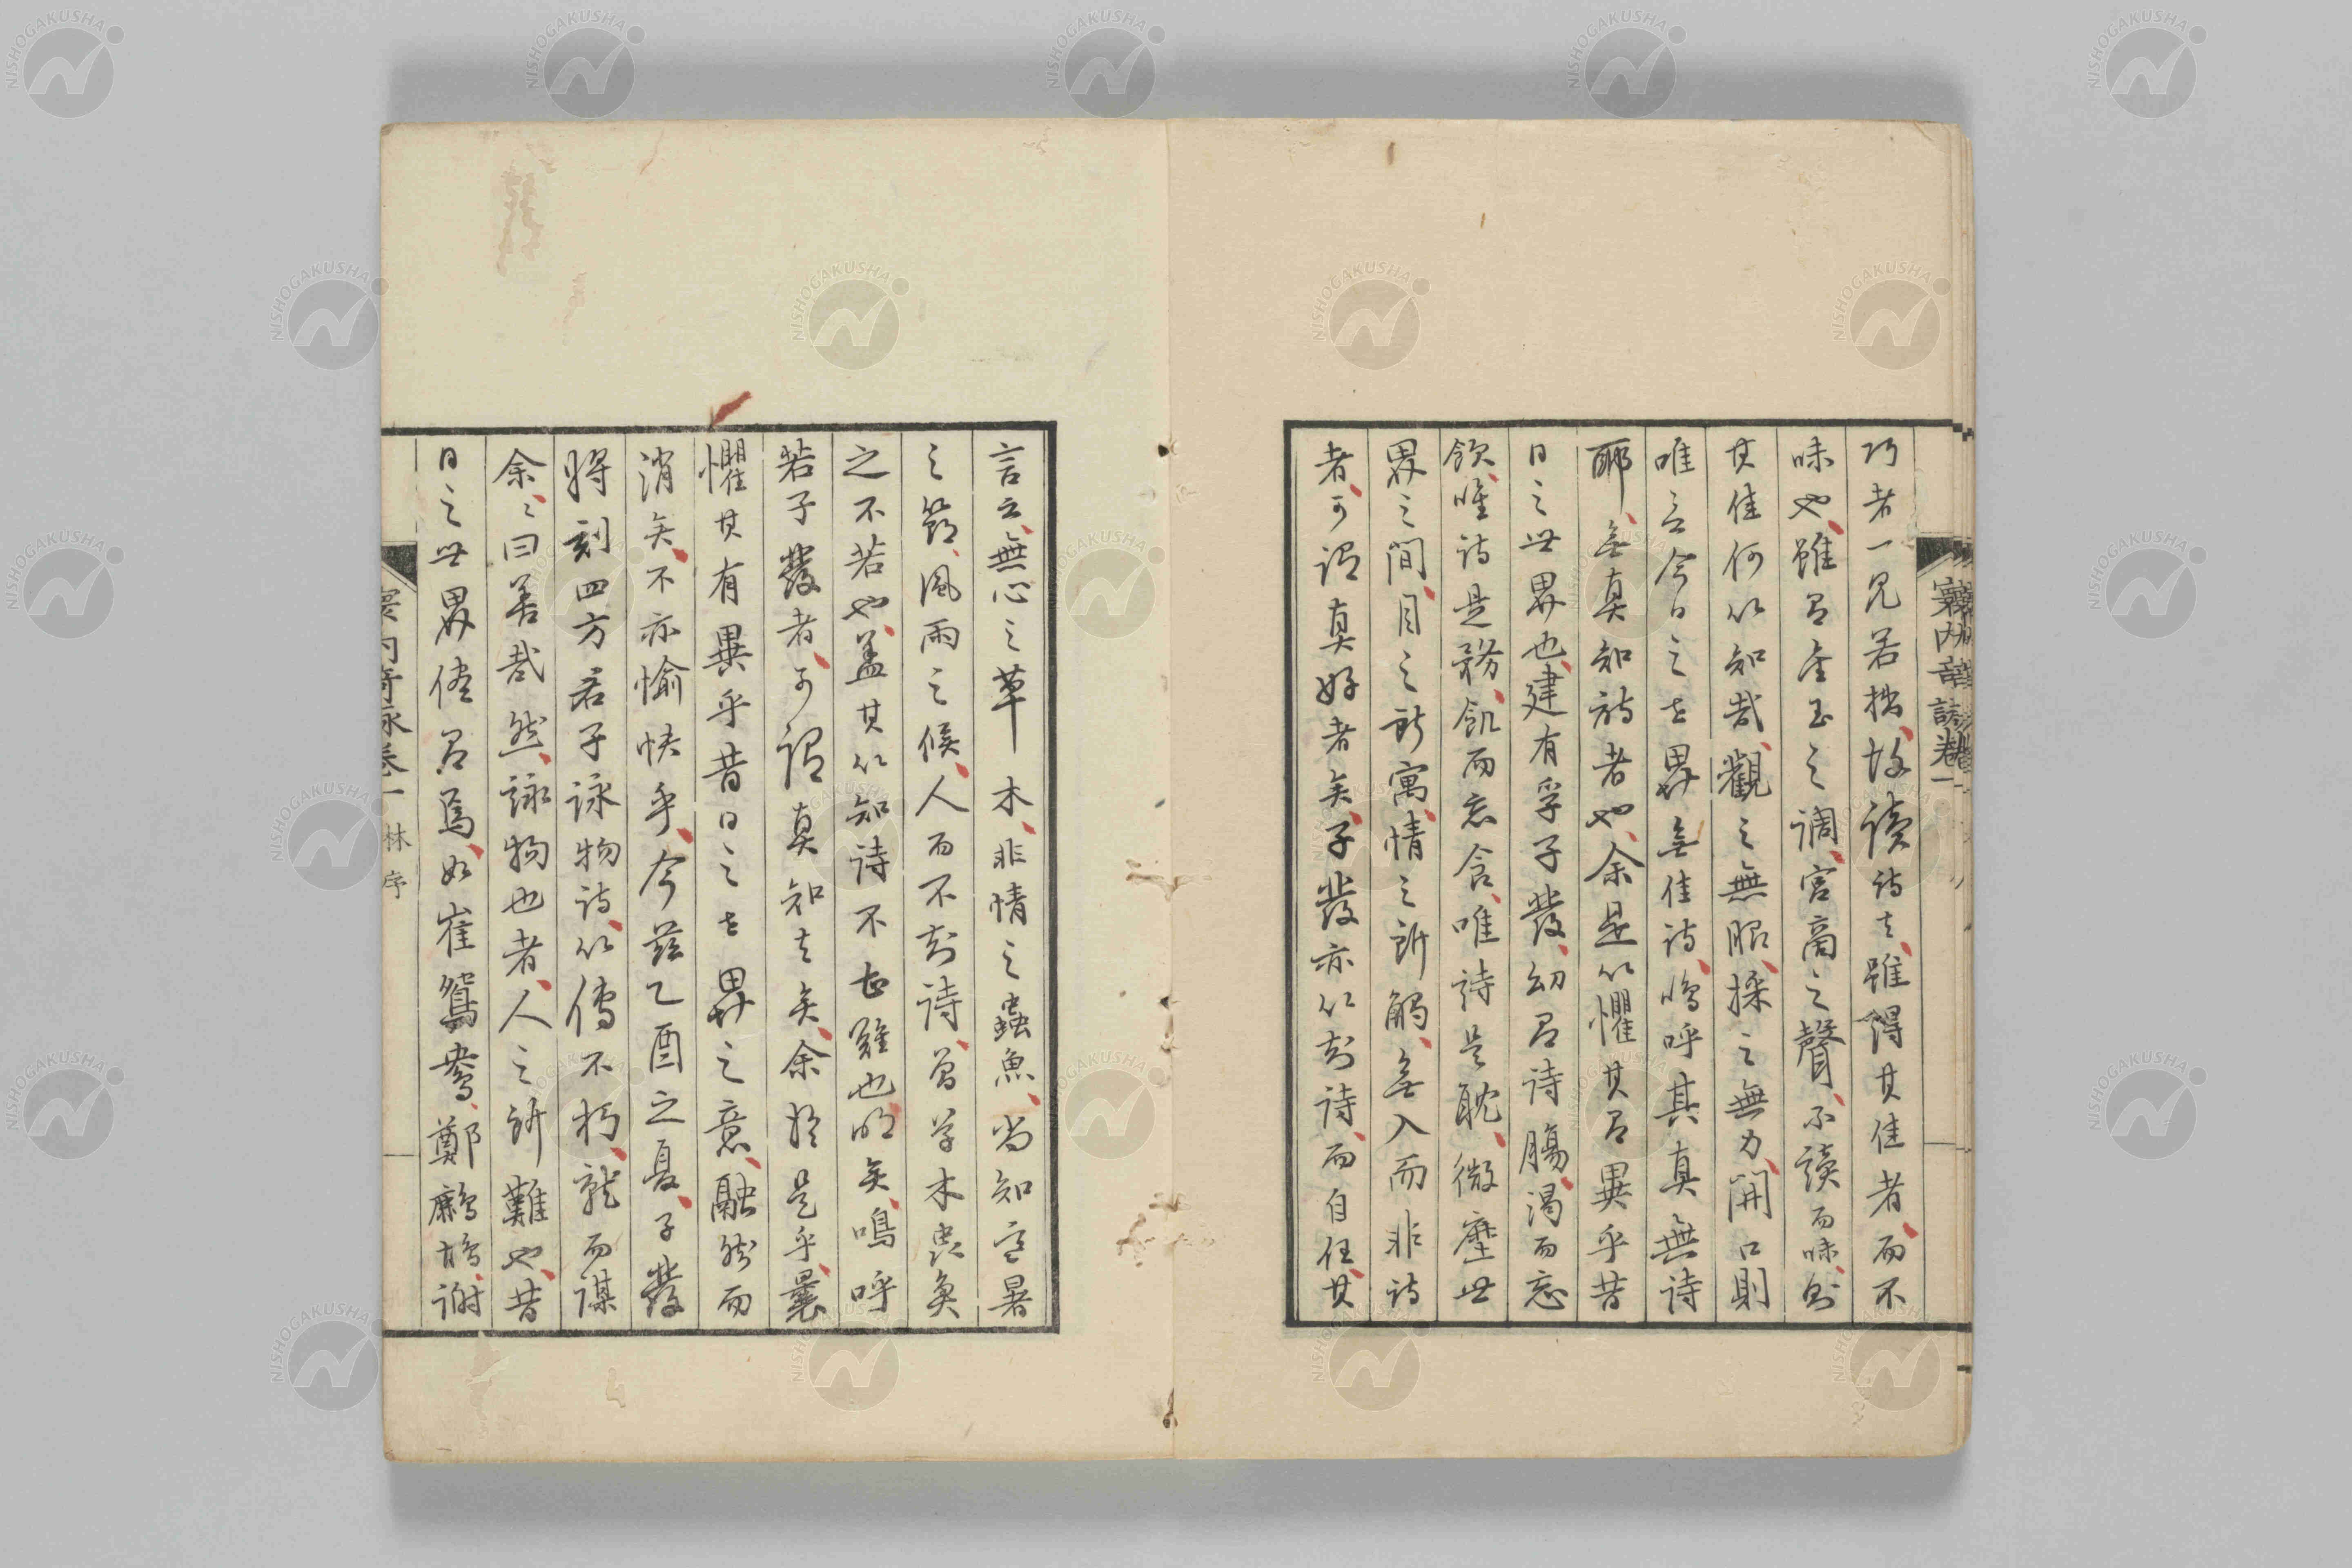 巧者一見若拙、故讀詩之、雖得其佳者、而不
味也、雖有金玉之調、宮商之聲、不讀而味、則
其佳何以知哉、觀之無眼、採之無力、開口則
唯言今日之世界無佳詩、嗚呼其真無詩
耶、無真知詩者也、余是以懼其有異乎昔
日之世界也、建有孚子發、幼有詩腸、渴而忘
飲、唯詩是務、飢而忘食、唯詩是耽、微塵世
界之間、目之所寓、情之所觸、無入而非詩
者、可謂真好者矣、子發亦以刻詩、而自任、其
言云、無心之草木、非情之蟲魚、尚知寒暑
之節、風雨之候、人而不刻詩、曾草木蟲魚
之不若也、蓋其以知詩不甚難也明矣、嗚呼
若子發者、可謂真知之矣、余於是乎、曩
懼其有異乎昔日之世界之意、融然而
消矣、不亦愉快乎、今茲乙酉之夏、子發
將刻四方君子詠物詩、以傳不朽、就而謀
余、々曰善哉、然、詠物也者、人之所難也、昔
日之世界僅有焉、如崔鴛鴦、鄭鷓鴣、謝
寰内奇詠卷一
林序